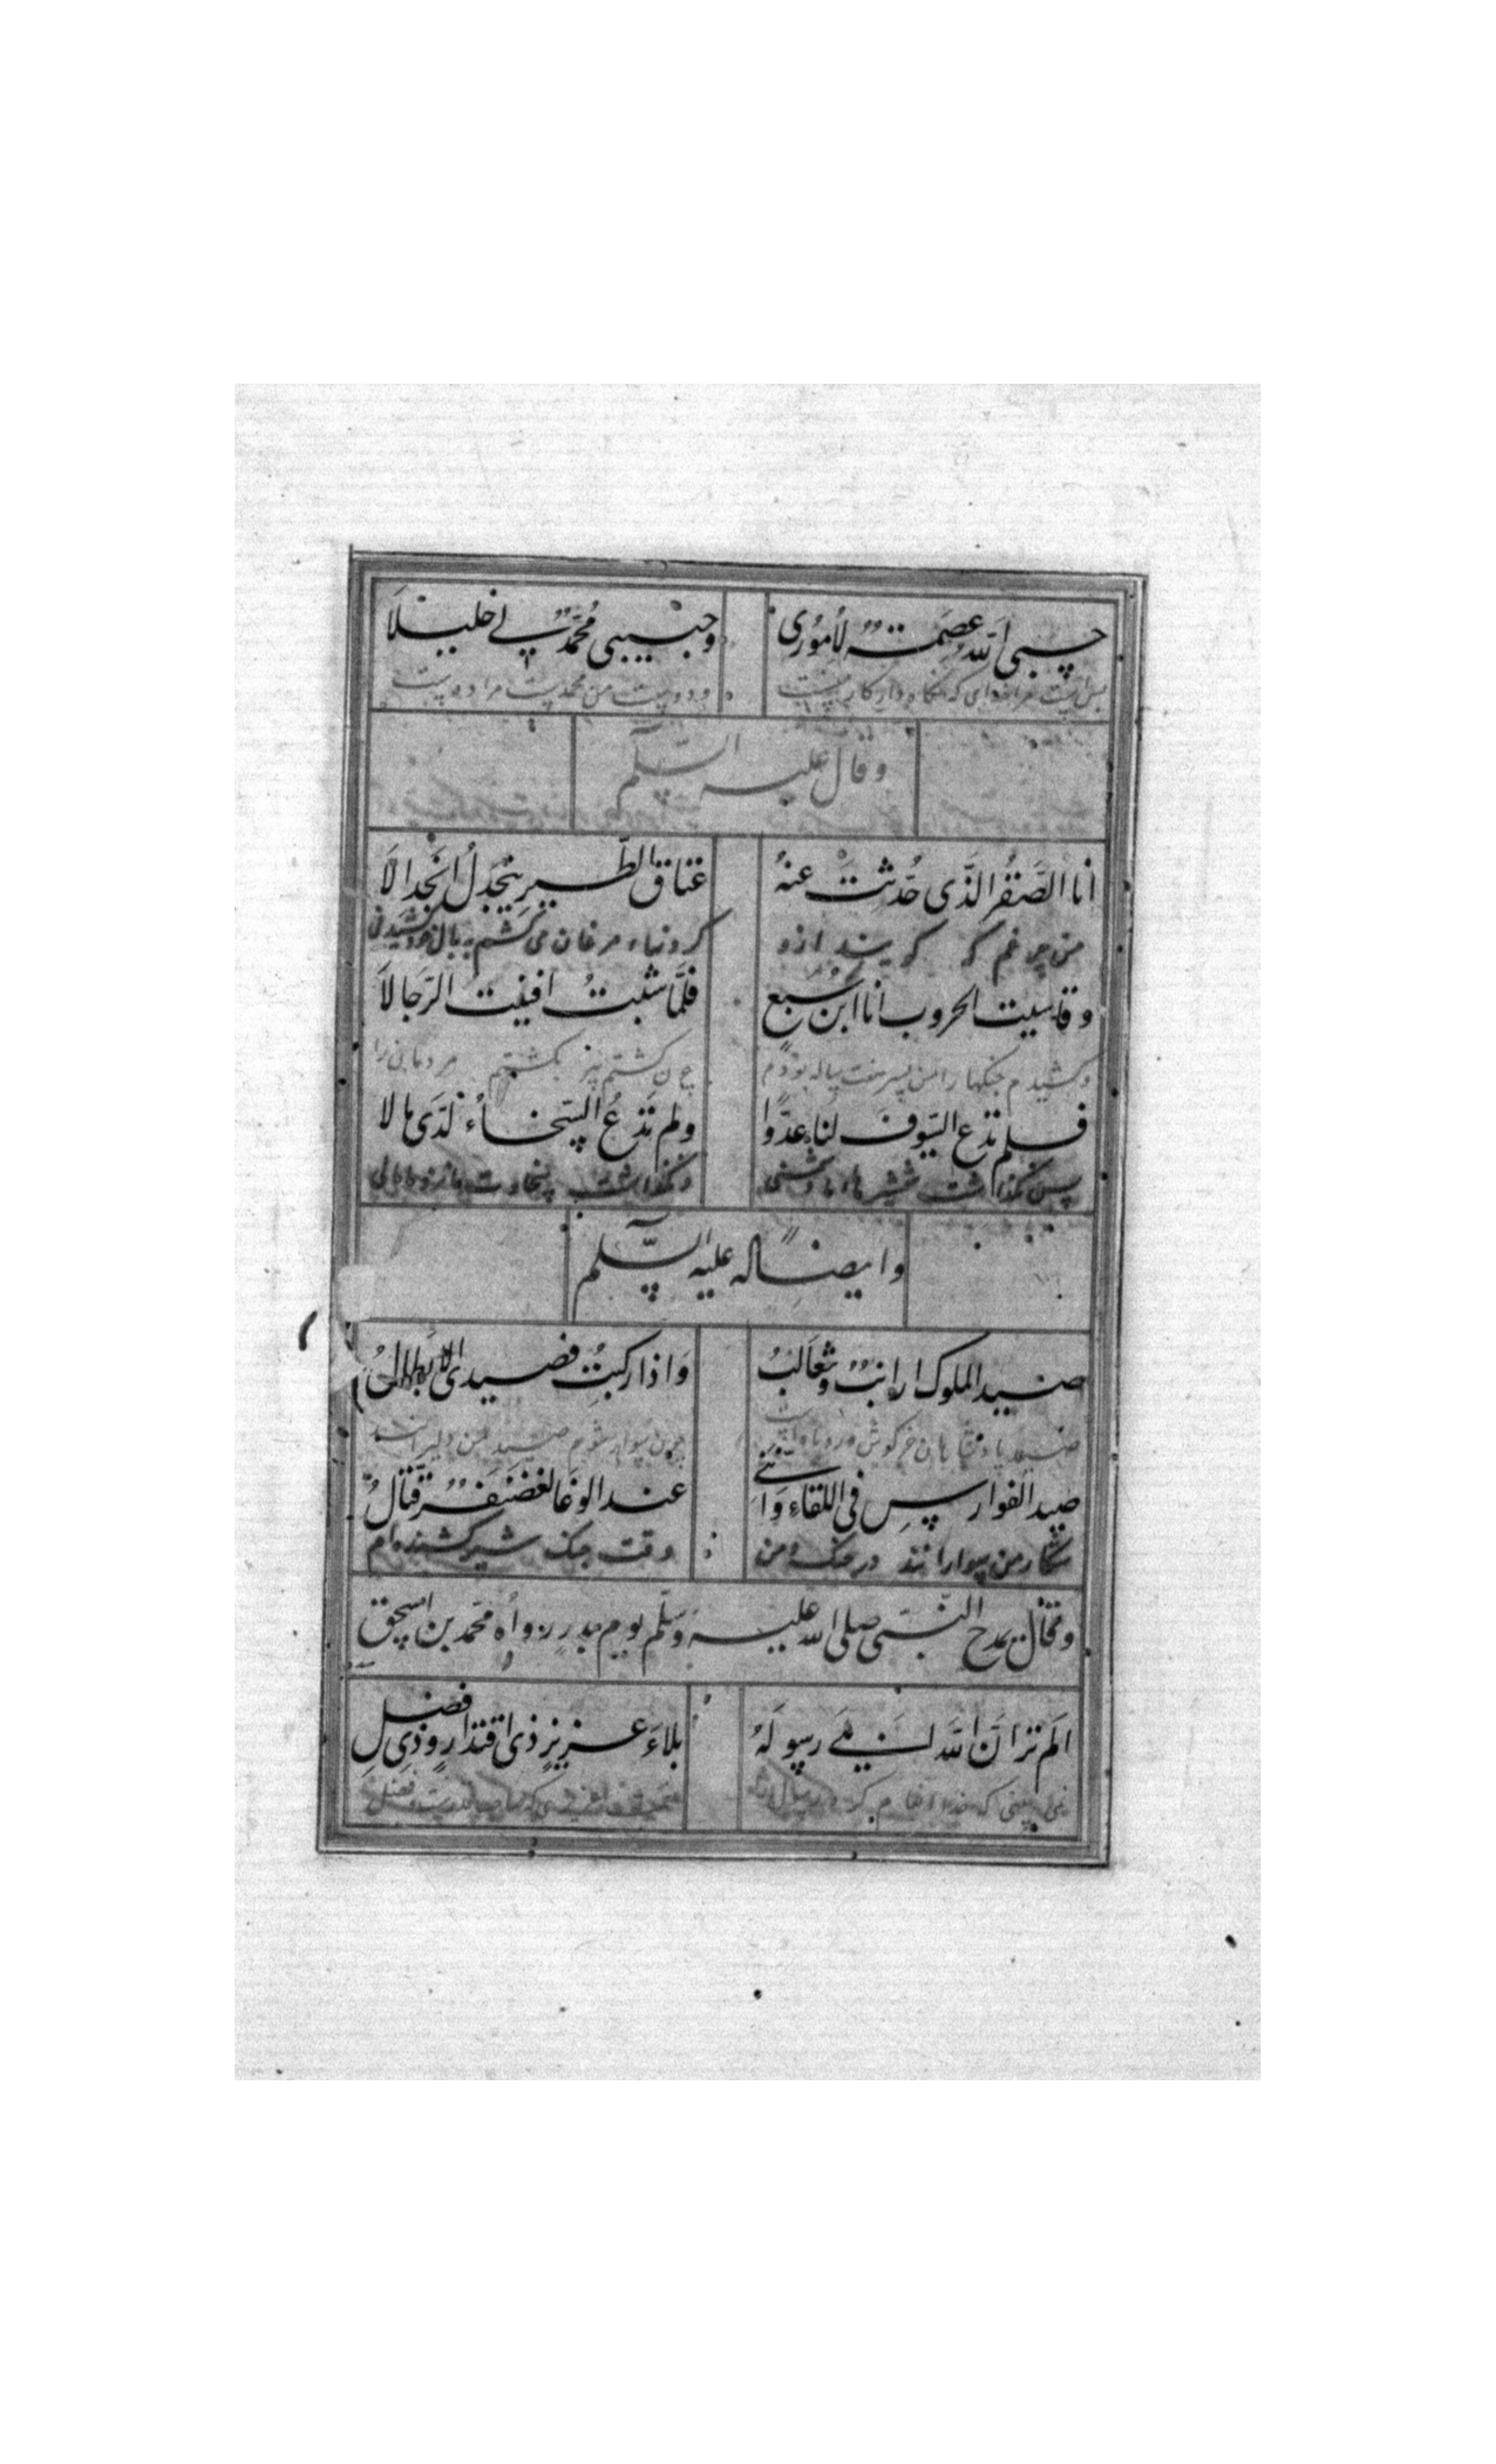 حسبی الله عصمة لأموری وحبیبی محمد لی خلیلا
بس است مرا خدای که نگاه دار کار منست و دوست من محمدیست مرا دوست
وقال علیه السّلم
أنا الصَّقرُ الذَّی حُدّثتَ عنهُ عتاق الطّیر ینجَدلُ انجدالاَ
من چرغم که گویند ازو کردنهاء مرغان می کشم به بال
وقاسیت الحروب أنا ابنُ سَبع فلمّا شبتُ افنیت الرّجالاَ
وکشیدم جنگها را من پسر هفت ساله بودم چون گشتم پیر بکشتم مردمانی را
فلم تدع السّیوف لنا عدّوا ولم تَدَعُ السّخاءُ لدَی مالا
پس نگذاشت شمشیرهاء ما دشمنی و نگذاشت سخاوت مالی
وایضاً له علیه السّلم
صید الملوک ارانبٌ وثعالبُ وَاذا رکبتُ فصیدی الابطالُ
صید پادشاهان خرگوش و روباه است چون سوار شوم صید من دلیرانند
صید الفوارسِ فی اللقاءِ وَانّنی عند الوغا لغضنفرٌ قتّالُ
شکار من سوارانند در جنگ و من وقت جنگ شیر کشنده ام
وقال یمدح النّبّی صلی الله علیه وسلّم یوم بدر رواه محمّد بن اسحق
الم تر انَّ الله ابلی رسولهُ بلاءَ عزیزٍ ذی اقتدارٍ وذی فضلِ
نمی بینی که خدا انعام کرد